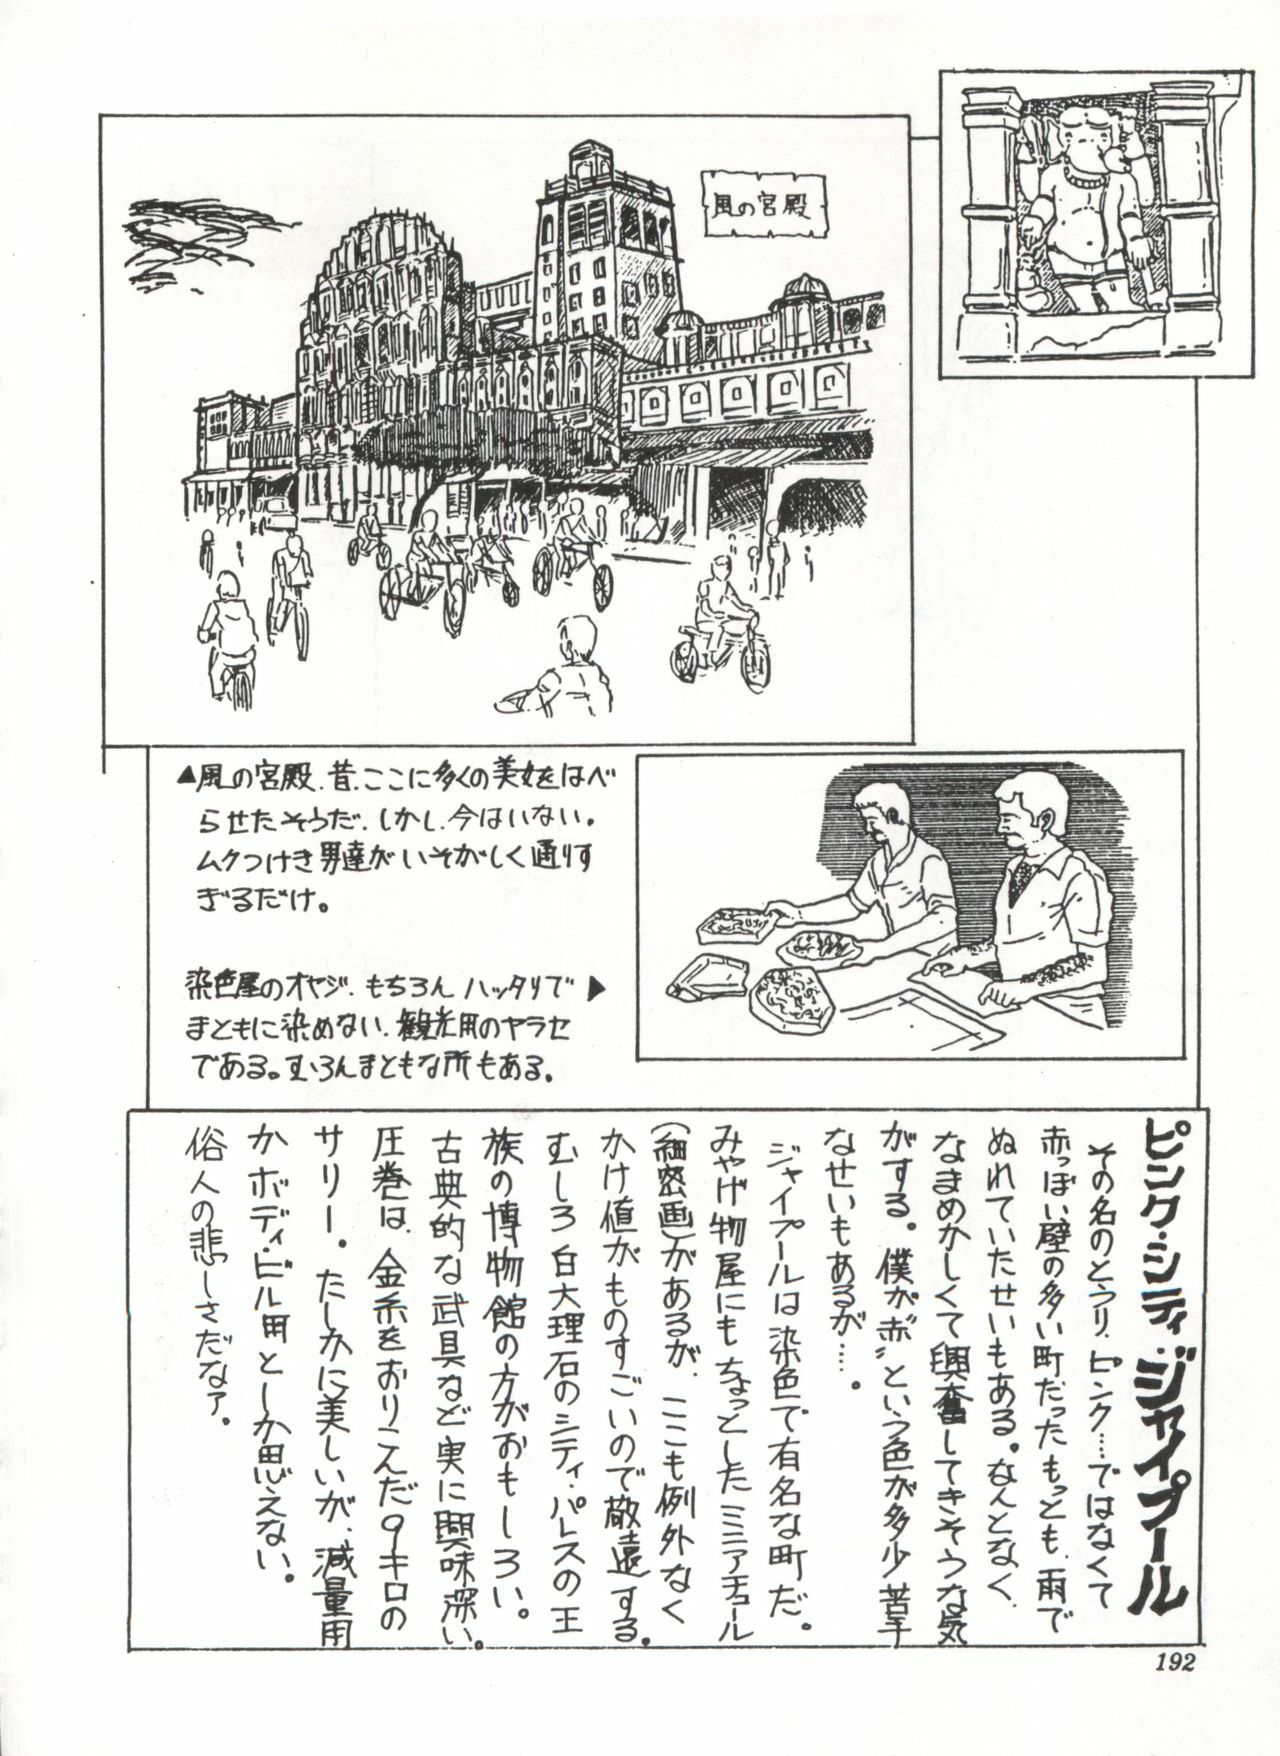 風の宮殿
▲風の宮殿.昔.ここに多くの美女をはべ
らせたそうだ.しかし.今はいない。
ムクつけき男達がいそがしく通りす
ぎるだけ。
染色屋のオヤジ.もちろんハッタリで▶
まともに染めない.観光用のヤラセ
である。むろんまともな所もある.
ピンク・シティ・ジャイプール
その名のとうり.ピンク……ではなくて
赤っぽい壁の多い町だったもっとも.雨で
ぬれていたせいもある。なんとなく
なまめかしくて興奮してきそうな気
がする。僕が〝赤〟という色が多少苦手
なせいもあるが……。
ジャイプールは染色で有名な町だ。
みやげ物屋にもちょっとしたミニアチュール
(細密画)があるが、ここも例外なく
かけ値がものすごいので敬遠する。
むしろ白大理石のシティ・パレスの王
族の博物館の方がおもしろい。
古典的な武具など実に興味深い。
圧巻は、金糸をおりこんだ9キロの
サリー。たしかに美しいが、減量用
かボディ・ビル用としか思えない。
俗人の悲しさだなァ。
192